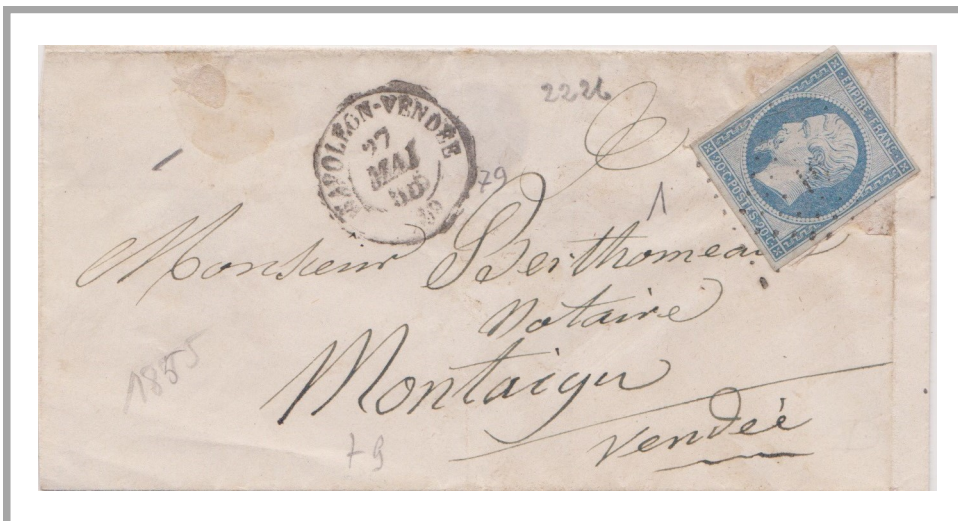 2226
NAPOLÉON-VENDÉE
27
MAI
79
EMPIRE FRANC.
20.C.POSTES.20.C.
1
Monsieur Berthomeau
Notaire
Montaigu
Vendée
1855
79